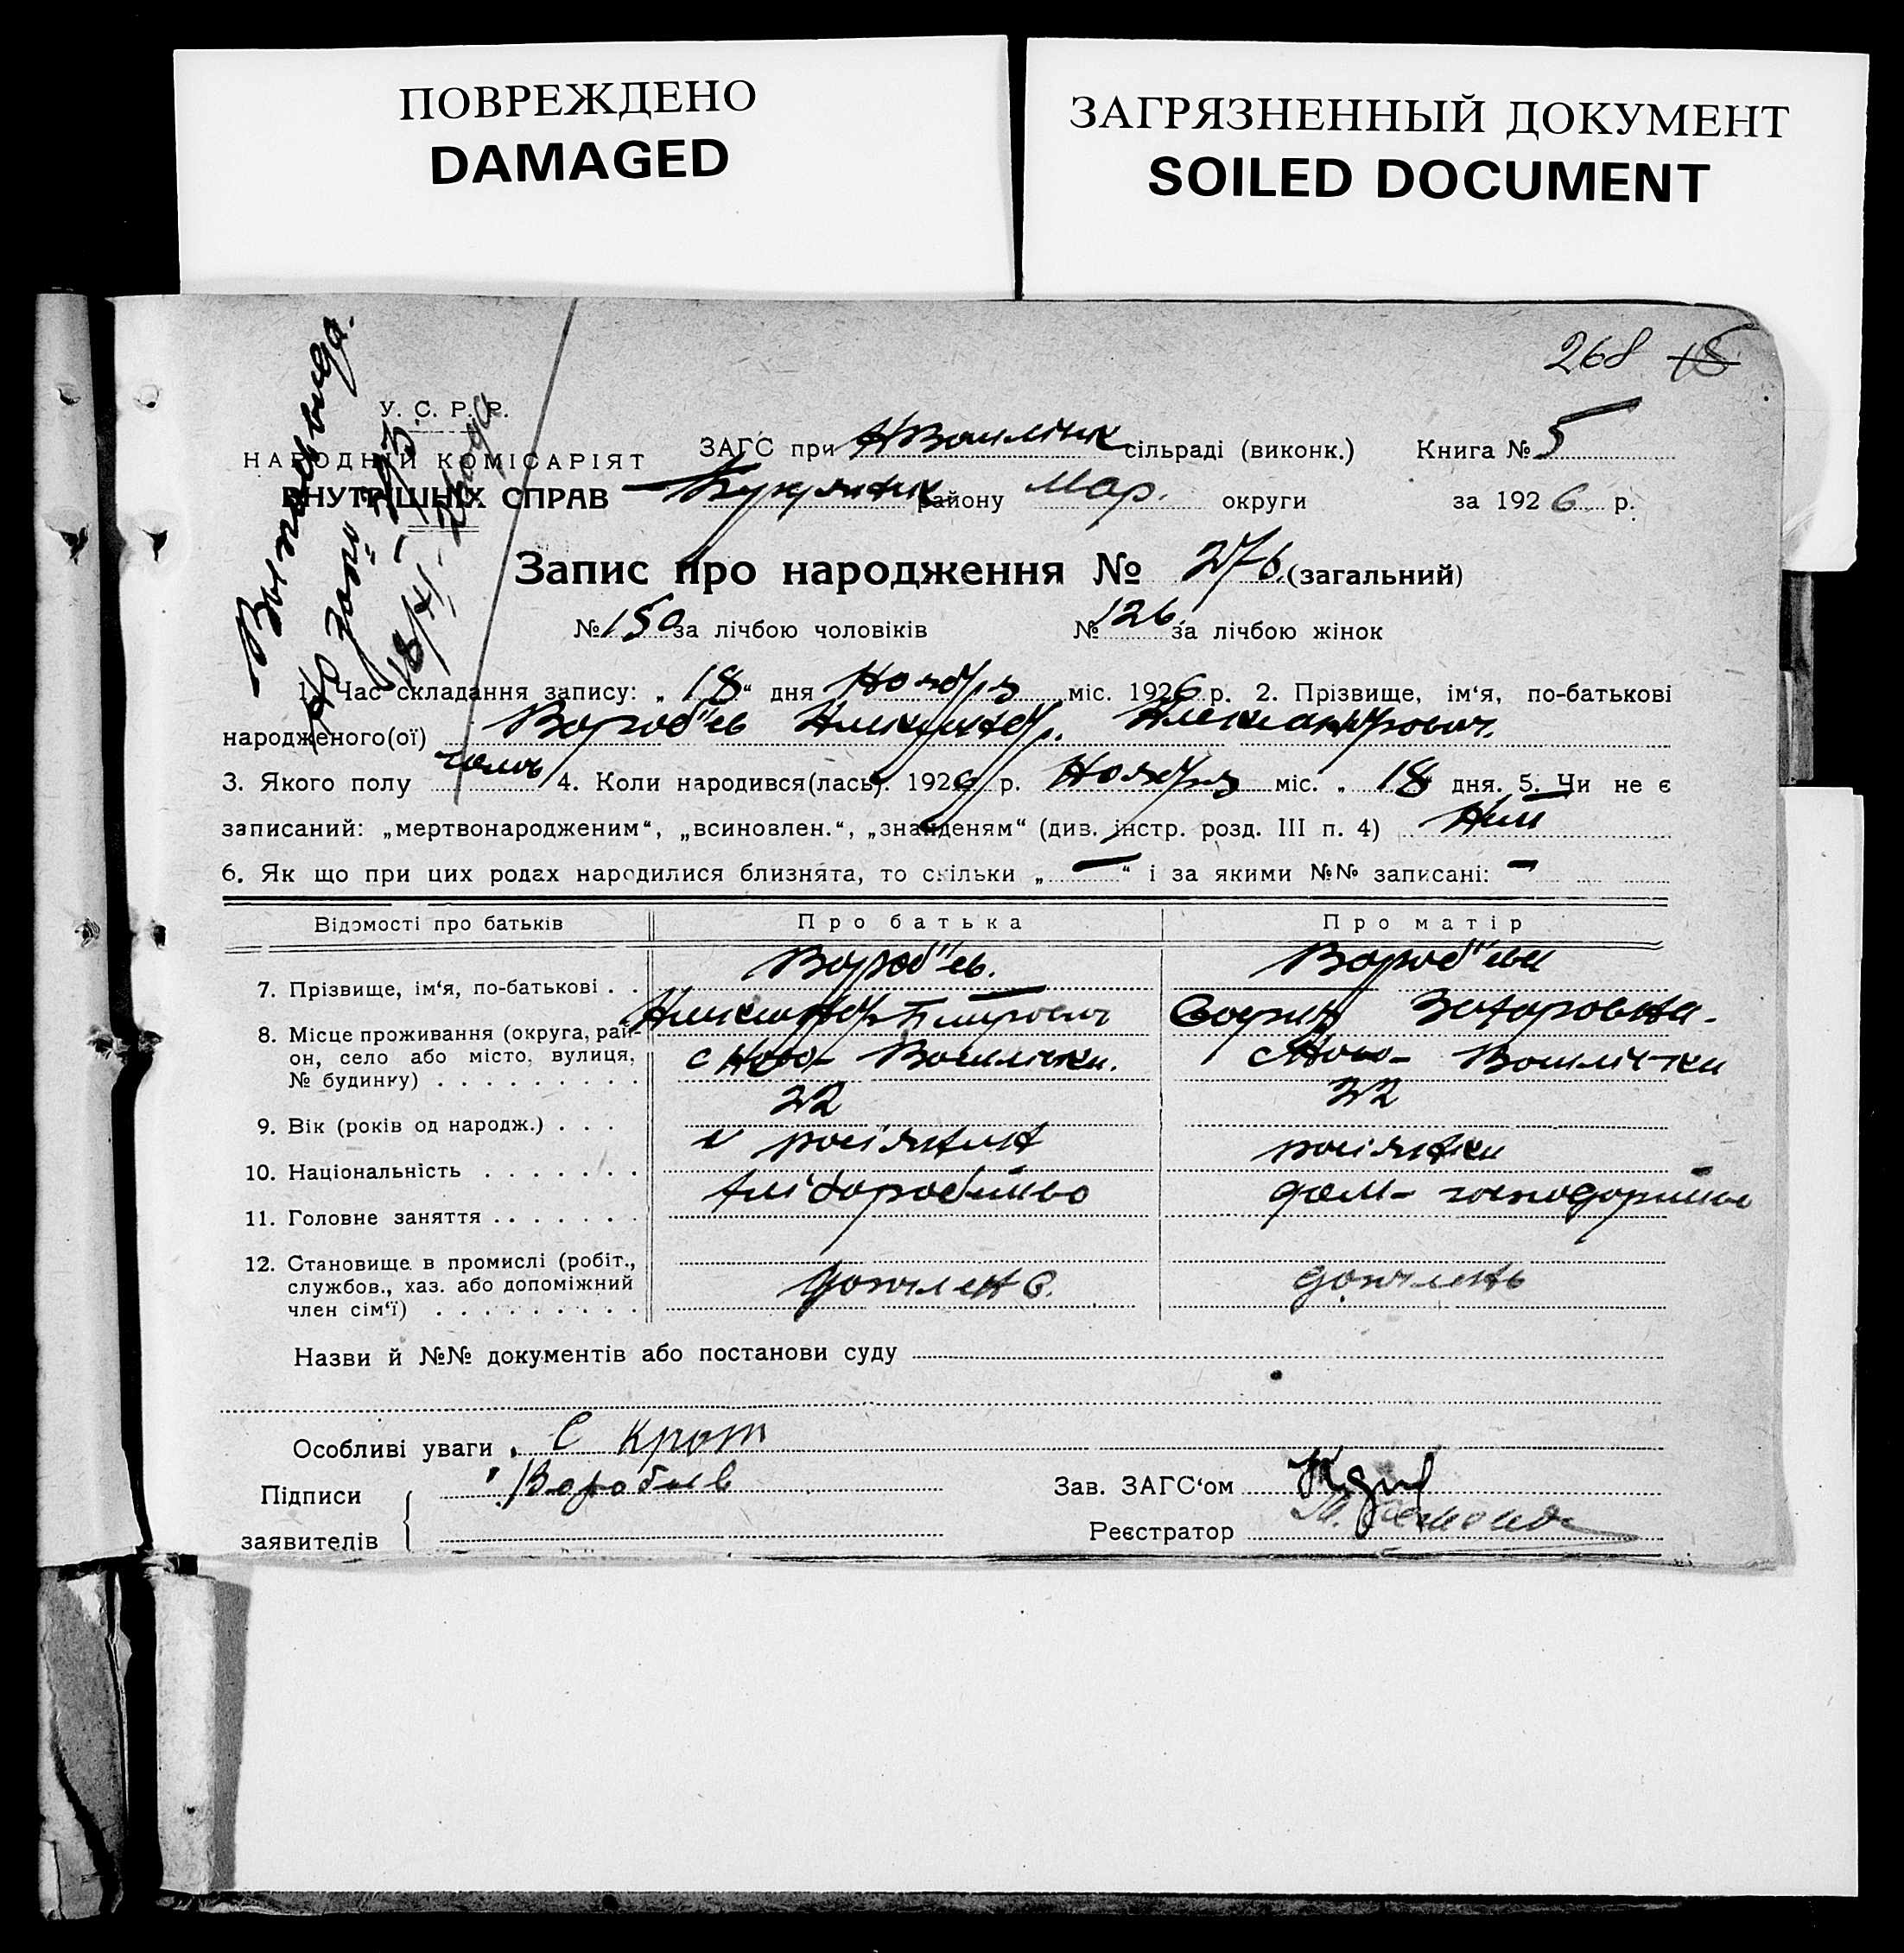 ПОВРЕЖДЕНО
DAMAGED
ЗАГРЯЗНЕННЫЙ ДОКУМЕНТ
SOILED DOCUMENT
268 18
У. С. Р. Р.
НАРОДНІЙ КОМІСАРІЯТ
ВНУТРІШНІХ СПРАВ
ЗАГС при сільраді (виконк.) Книга № 5
району Мар. округи за 1926 р.
Запис про народження № 276 (загальний)
№ 150 за лічбою чоловіків № 126 за лічбою жінок
1. Час складання запису: „18“ дня Ноября міс. 1926 р. 2. Прізвище, ім‘я, по-батькові
народженого(ої) Вороб"єв Александр. Александрович.
3. Якого полу чолов 4. Коли народився(лась). 1926 р. Ноября міс. „ 18 дня. 5. Чи не є
записаний: „мертвонародженим“, „всиновлен.“, „знайденям“ (див. інстр. розд. III п. 4)
6. Як що при цих родах народилися близнята, то скільки „ — “ і за якими №№ записані: —
Відомості про батьків Про батька Про матір
Вороб"єв. Вороб"єва
7. Прізвище, ім‘я, по-батькові . .
Александр Захаровна.
8. Місце проживання (округа, рай-
он, село або місто, вулиця,
№ будинку) . . . . . . . . .
с Ново- с Ново-
22 22
9. Вік (років од народж.) . . .
росіянин росіянка
10. Національність . . . . . . .
хліборобство дом- господарство
11. Головне заняття . . . . . . .
12. Становище в промислі (робіт.,
службов., хаз. або допоміжний
член сім‘ї) . . . . . . . . .
допчлен С. допчлень
Назви й №№ документів або постанови суду
Особливі уваги . С Крот
Підписи Воробьев Зав. ЗАГС‘ом
заявителів Реєстратор